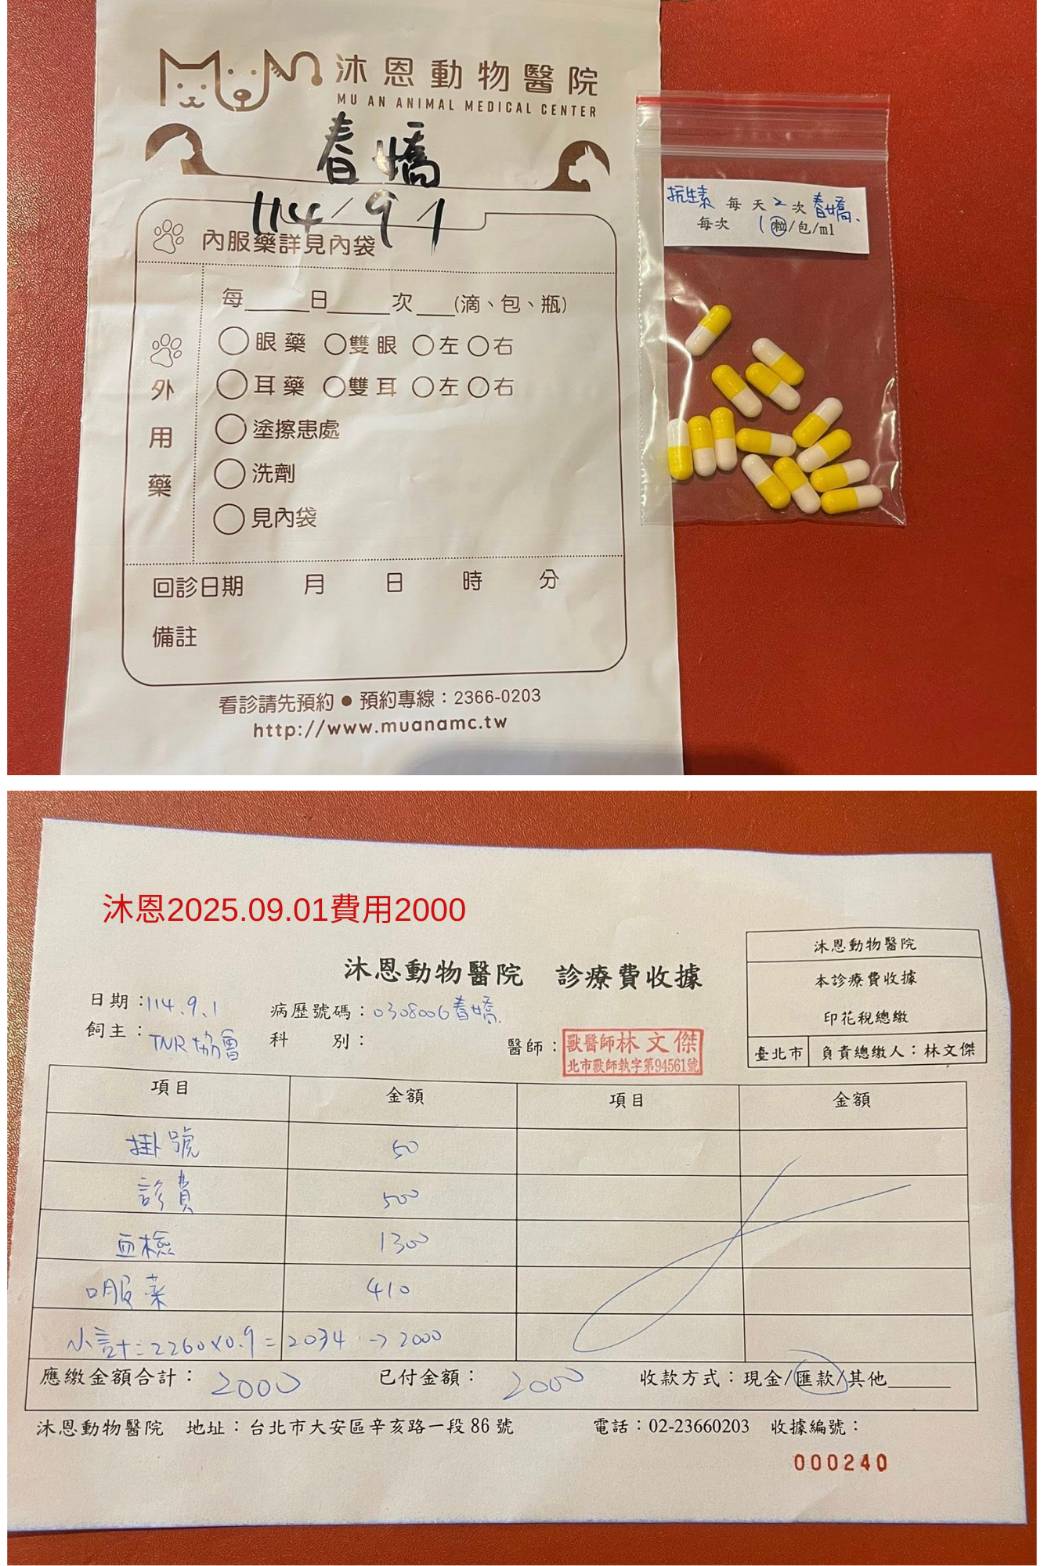 沐恩動物醫院
MU AN ANIMAL MEDICAL CENTER
春嬌
114/9/1
內服藥詳見內袋
每____日____次___(滴、包、瓶)
外用藥
眼藥 雙眼 左 右
耳藥 雙耳 左 右
塗擦患處
洗劑
見內袋
回診日期 月 日 時 分
備註
看診請先預約●預約專線：2366-0203
http://www.muanamc.tw
抗生素 每天2次 春嬌.
每次 1粒/包/ml
沐恩2025.09.01費用2000
沐恩動物醫院 診療費收據
沐恩動物醫院
本診療費收據
印花稅總繳
臺北市 負責總繳人：林文傑
日期：114.9.1 病歷號碼：0308006春嬌.
飼主：TNR協會 科 別： 醫師：獸醫師林文傑
北市獸師執字第94561號
項目 金額 項目 金額
掛號 50
診費 500
血檢 1300
口服藥 410
小計=2260x0.9=2034 →2000
應繳金額合計：2000 已付金額：2000 收款方式：現金/匯款/其他______
沐恩動物醫院 地址：台北市大安區辛亥路一段86號 電話：02-23660203 收據編號：
000240